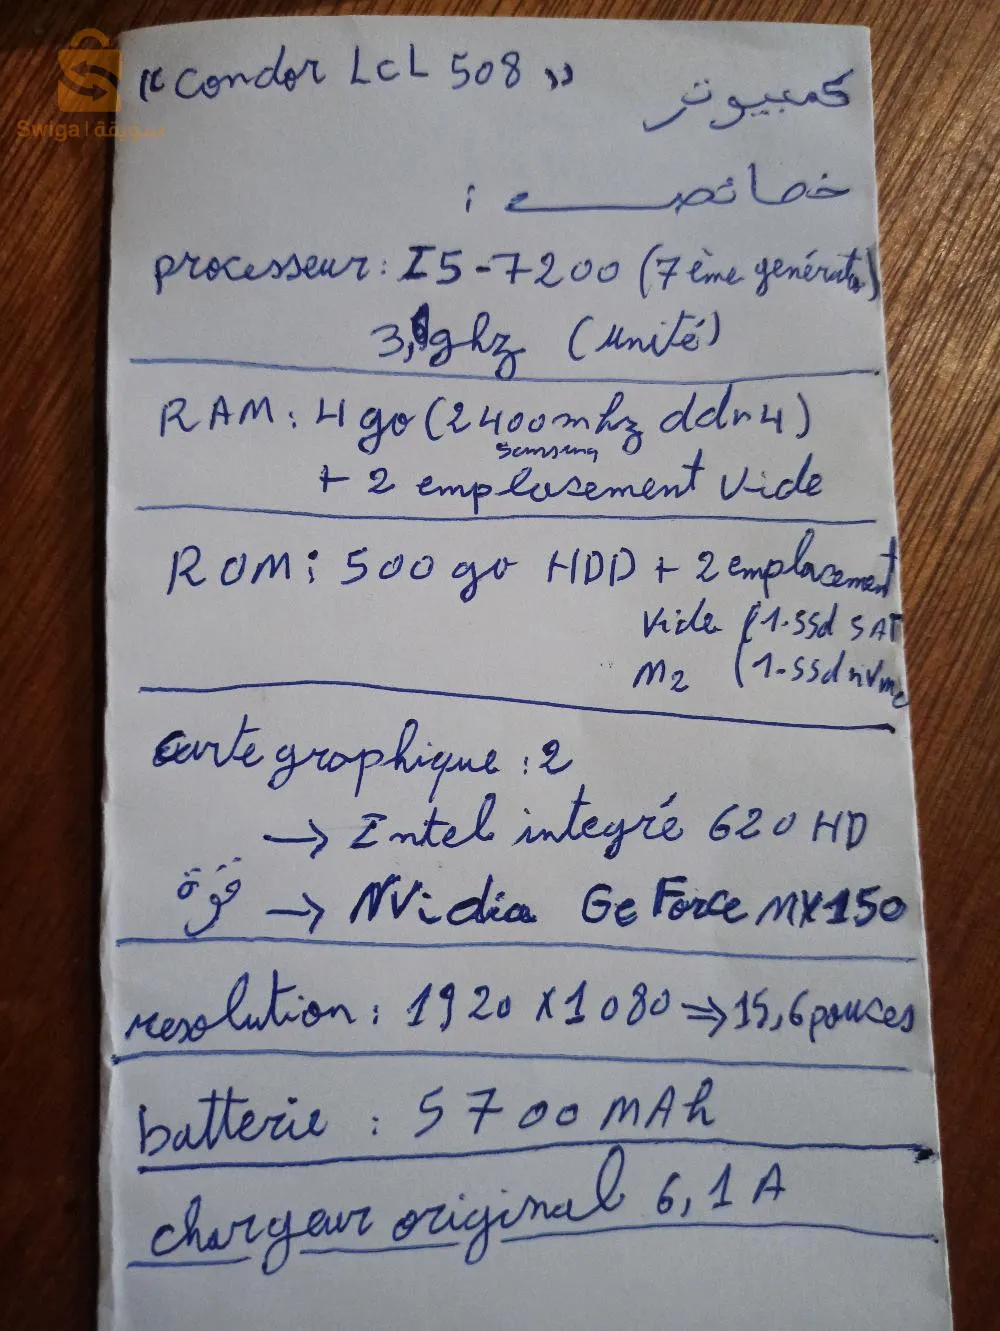 Swiga | سويقة
"Condor LcL 508" كمبيوتر
خصائص :
processeur : I5-7200 (7ème génération)
3,1ghz (Unité)
RAM : 4 go (2400mhz ddr4)
Samsung
+ 2 emplasement vide
ROM : 500 go HDD + 2 emplacement
vide (1-ssd SAT
M2 (1-ssd nVme
carte graphique : 2
→ Intel integré 620 HD
→ NVidia GeForce MX150
resolution : 1920 X 1080 ⇒ 15,6 pouces
batterie : 5700 MAh
chargeur original 6,1 A